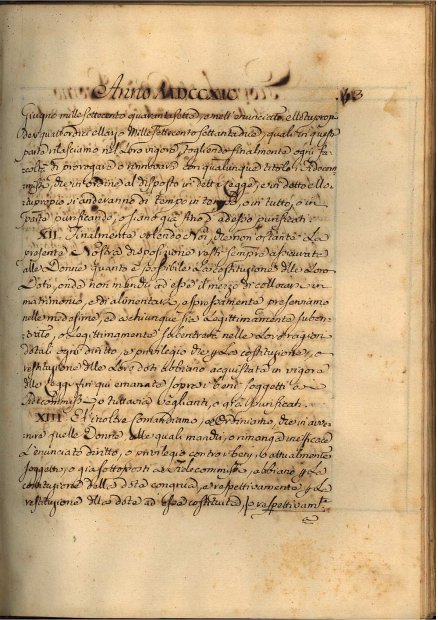 Anno MDCCXIC
Giugno mille settecento quarantasette, e nell' enunciato
quattordici Maggio Mille settecento settantadue, quali in questa
parte rilasciamo nel loro vigore, togliendo finalmente ogni fa-
coltà di prorogare o rinnovare con qualunque titolo i Fidecom-
missi, che in ordine al disposto in detta Legge, e in detto Mo-
tuproprio si anderanno di tempo in tempo, o in tutto, o in
parte purificando, o siano già fino ad esso purificati.
XII. Finalmente volendo Noi, che non ostante la
presente Nostra disposizione resti sempre assicurata
alle Donne quanto è possibile la costituzione delle loro
Doti, onde non manchi ad esse il mezzo di collocarsi in
matrimonio, e di alimentarsi, espressamente preserviamo
nelle medesime, ed a chiunque sia legittimamente suben-
trato, o legittimamente subentrerà nelle loro ragioni
dotali ogni diritto, e privilegio che per la costituzione, o
restituzione delle loro doti abbiano acquistato in vigore
delle Leggi fin qui emanate sopra i beni soggetti a
Fidecommissi o tuttavia veglianti, o già purificati.
XIII. Ed inoltre Comandiamo, ed Ordiniamo, che in avve-
nire quelle Donne alle quali manchi, o rimanga inefficace
l'enunciato diritto, o privilegio contro i beni, o attualmente
soggetti, o già sottoposti a Fidecommissi, abbiano per la
costituzione della dote congrua, e respettivamente per la
restituzione della dote ad esse costituita, respettivam.